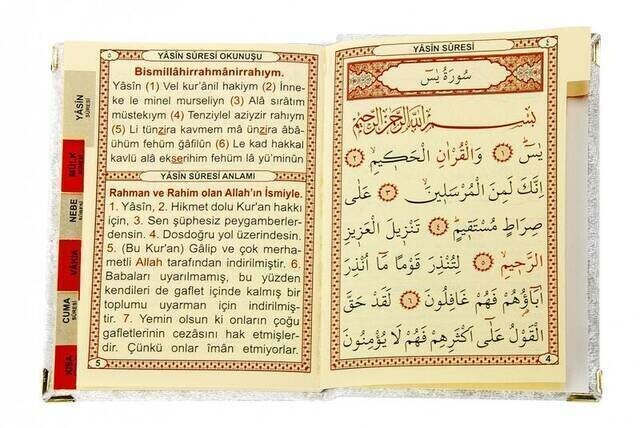 ٥
YÂSİN SÛRESİ OKUNUŞU
Bismillâhirrahmânirrahıym.
Yâsîn (1) Vel kur'ânil hakiym (2) İnne-
ke le minel murseliyn (3) Alâ sırâtım
müstekıym (4) Tenziylel aziyzir rahıym
(5) Li tünzira kavmem mâ ünzira âbâ-
ühüm fehüm ğâfilûn (6) Le kad hakkal
kavlü alâ ekserihim fehüm lâ yü'minûn
YÂSİN SÛRESİ ANLAMI
Rahman ve Rahim olan Allah'ın İsmiyle.
1. Yâsîn, 2. Hikmet dolu Kur'an hakkı
için, 3. Sen şüphesiz peygamberler-
densin. 4. Dosdoğru yol üzerindesin.
5. (Bu Kur'an) Gâlip ve çok merha-
metli Allah tarafından indirilmiştir. 6.
Babaları uyarılmamış, bu yüzden
kendileri de gaflet içinde kalmış bir
toplumu uyarman için indirilmiş-
tir. 7. Yemin olsun ki onların çoğu
gafletlerinin cezasını hak etmişler-
dir. Çünkü onlar îmân etmiyorlar.
5
YÂSİN
SÛRESİ
MÜLK
NEBE
SÛRESİ
VÂKIA
CUMA
SÛRESİ
KISA
YÂSİN SÛRESİ
٤
سُورَةُ يٰسٓ
بِسْمِ اللّٰهِ الرَّحْمٰنِ الرَّحِيمِ
يٰسٓ ﴿١﴾ وَالْقُرْاٰنِ الْحَكِيمِ ﴿٢﴾
اِنَّكَ لَمِنَ الْمُرْسَلِينَ ﴿٣﴾ عَلٰى
صِرَاطٍ مُسْتَقِيمٍ ﴿٤﴾ تَنْزِيلَ الْعَزِيزِ
الرَّحِيمِ ﴿٥﴾ لِتُنْذِرَ قَوْمًا مَٓا اُنْذِرَ
اٰبَٓاؤُهُمْ فَهُمْ غَافِلُونَ ﴿٦﴾ لَقَدْ حَقَّ
الْقَوْلُ عَلٰٓى اَكْثَرِهِمْ فَهُمْ لَا يُؤْمِنُونَ
4